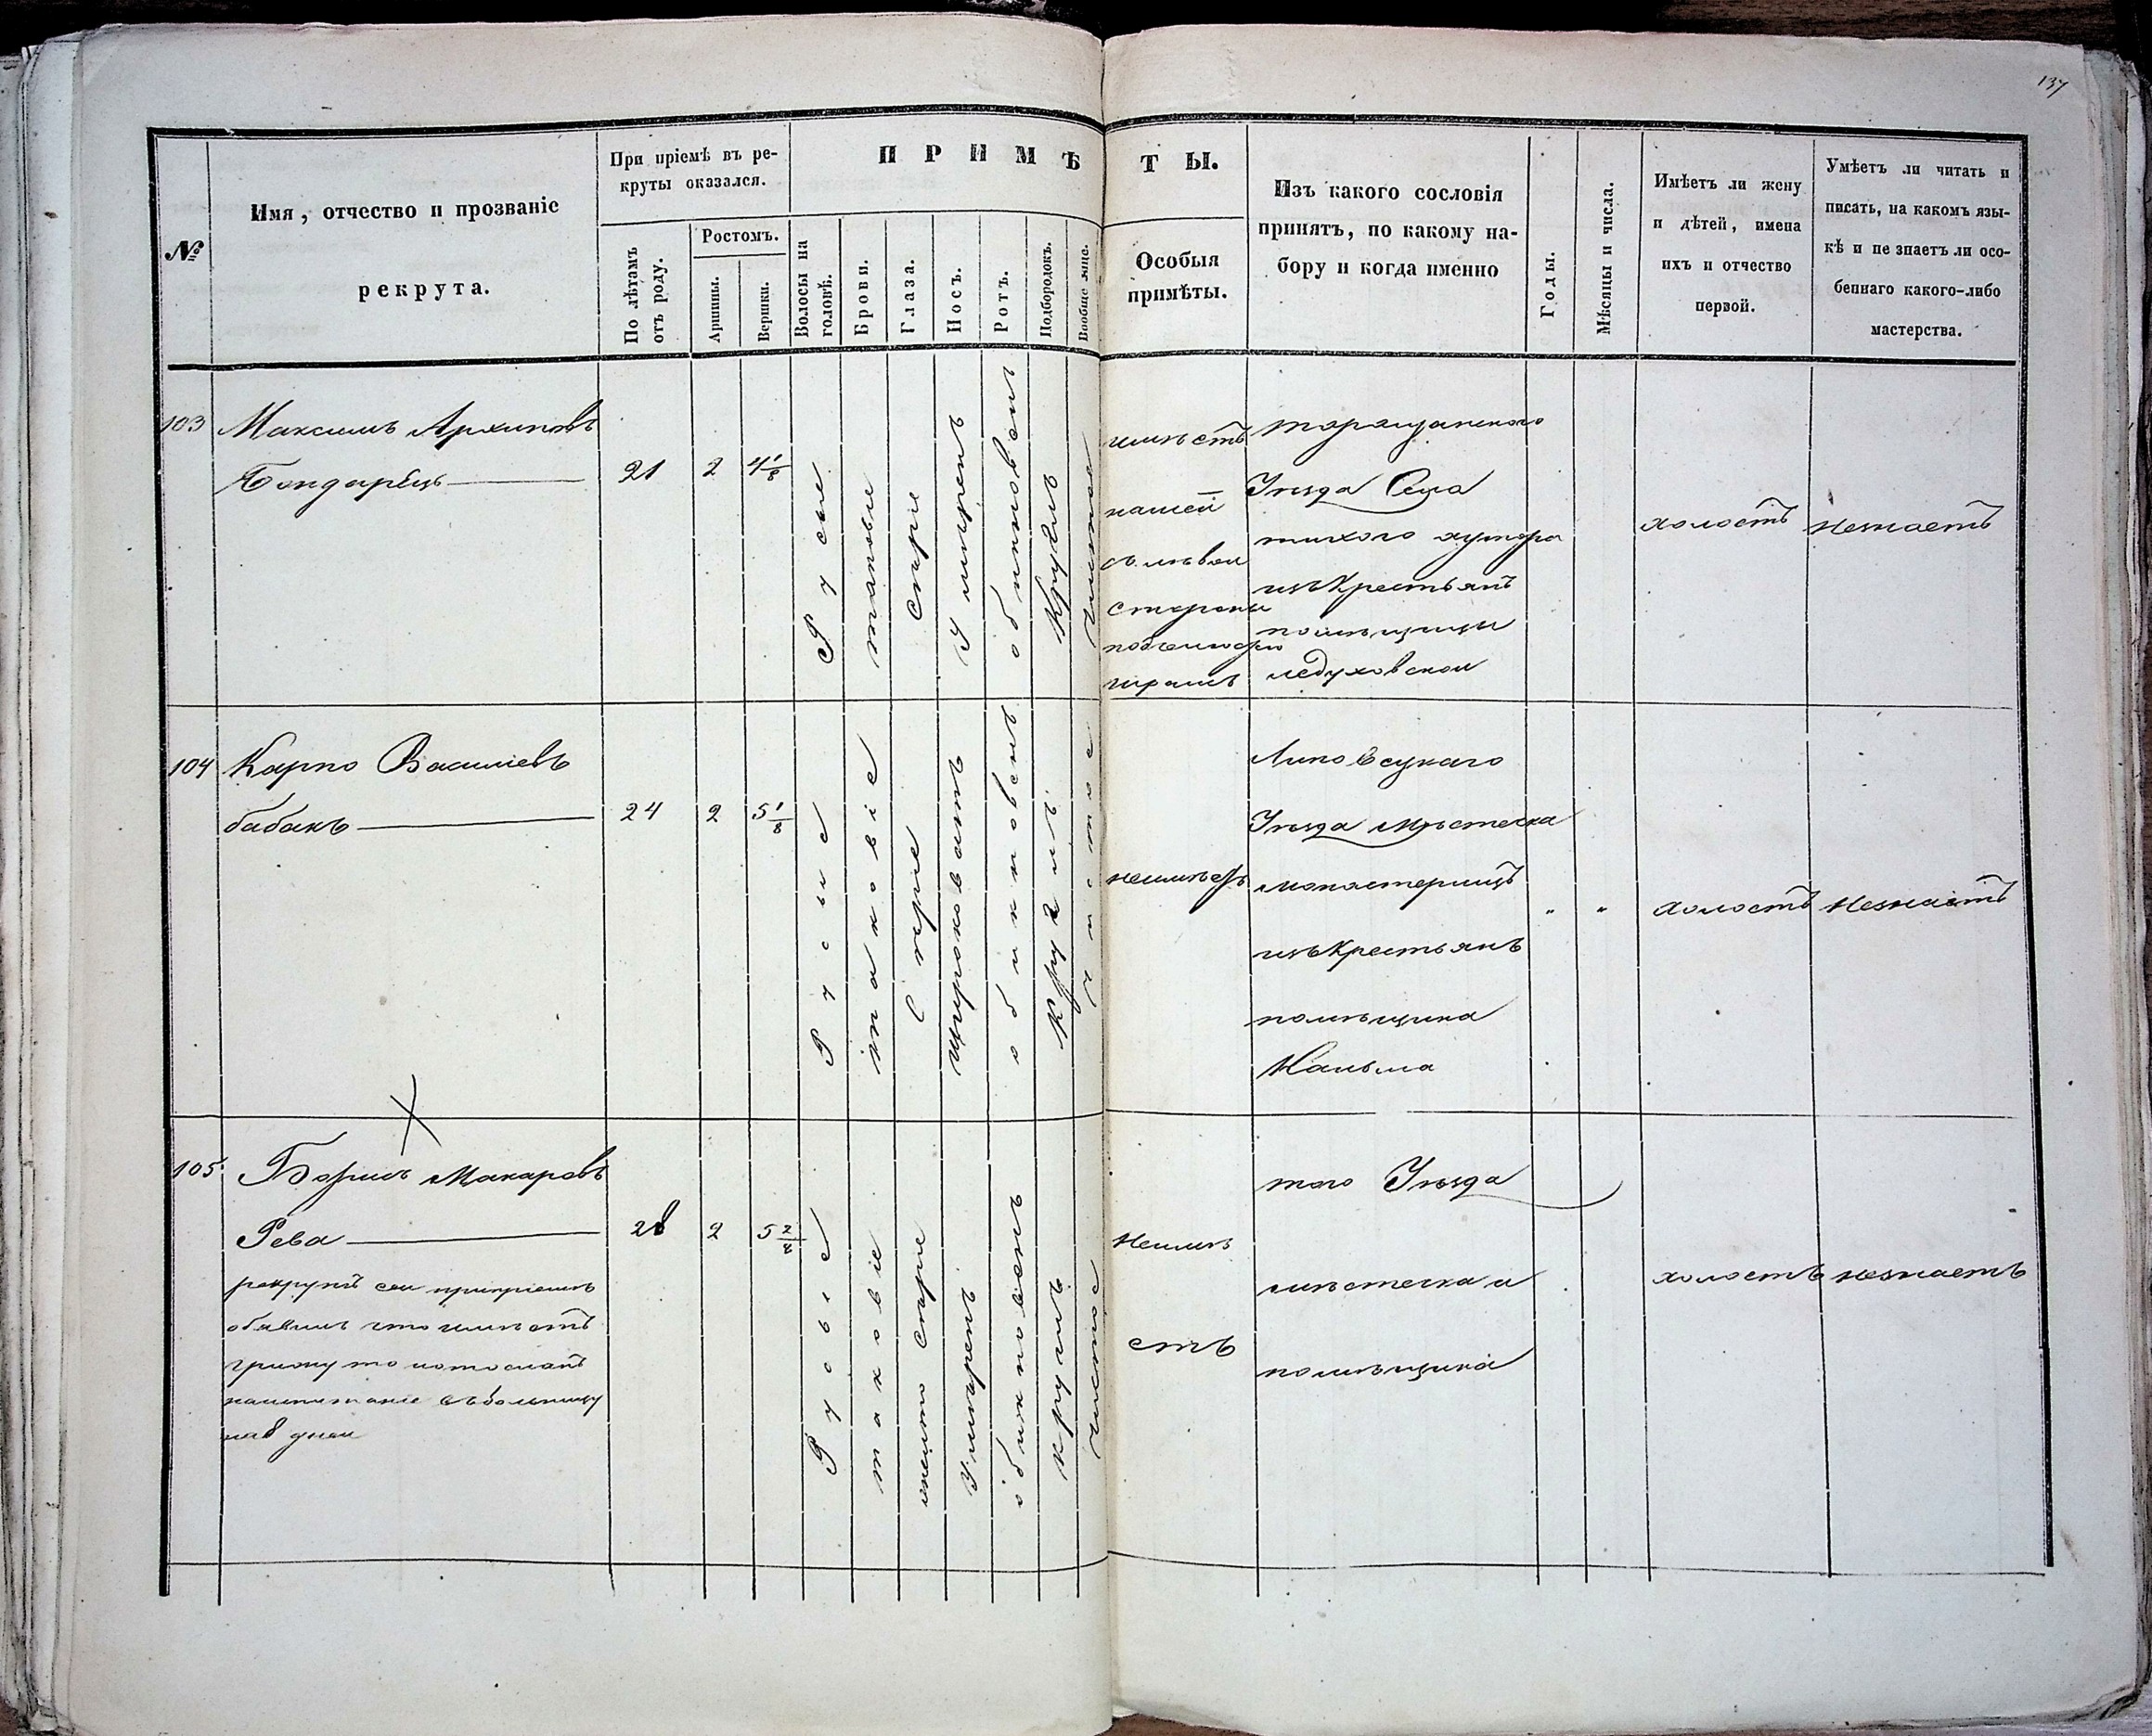 137
№
Имя, отчество и прозваніе
рекрута.
При пріемѣ въ ре-
круты оказался.
По лѣтамъ
отъ роду.
Ростомъ.
Аршины.
Вершки.
ПРИМѢТЫ.
Волосы на
головѣ.
Брови.
Глаза.
Носъ.
Ротъ.
Подбородокъ.
Вообще лице.
Особыя
примѣты.
Изъ какого сословія
принятъ, по какому на-
бору и когда именно
Годы.
Мѣсяцы и числа.
Имѣетъ ли жену
и дѣтей, имена
ихъ и отчество
первой.
Умѣетъ ли читать и
писать, на какомъ язы-
кѣ и не знаетъ ли осо-
беннаго какого-либо
мастерства.
103
Максимъ Архиповъ
Бондарецъ
21
2
4 1/8
Русые
таковые
Серые
Умѣренъ
обикновен
Круглъ
Чистое
имѣетъ
на шеи
съ лѣвои
стороны
шрамъ
таращанского
Уѣзда Села
тихого хутора
изъ Крестьянъ
помѣщицы
ледуховскои
холостъ
незнаетъ
104
Карпо Василіевъ
бабакъ
24
2
5 1/8
Русые
таковіе
Серые
Широковатъ
обикновенъ
Круглъ
Чистое
неимѣетъ
Липовецкаго
Уѣзда мѣстечка
монастерищъ
изъ Крестьянъ
помѣщика
"
"
холостъ
незнаетъ
105
Борисъ Макаровъ
Рева
рекрутъ сеи припріемѣ
обявилъ что имѣетъ
грижу то и отосланъ
на испитаніе въ больницу
на 8 днеи
28
2
5 2/8
Русіе
таковіе
жолто серые
Умѣренъ
обикновенъ
круглъ
чистое
Неимѣ
етъ
того Уѣзда
мѣстечка и
помѣщика
холостъ
незнаетъ